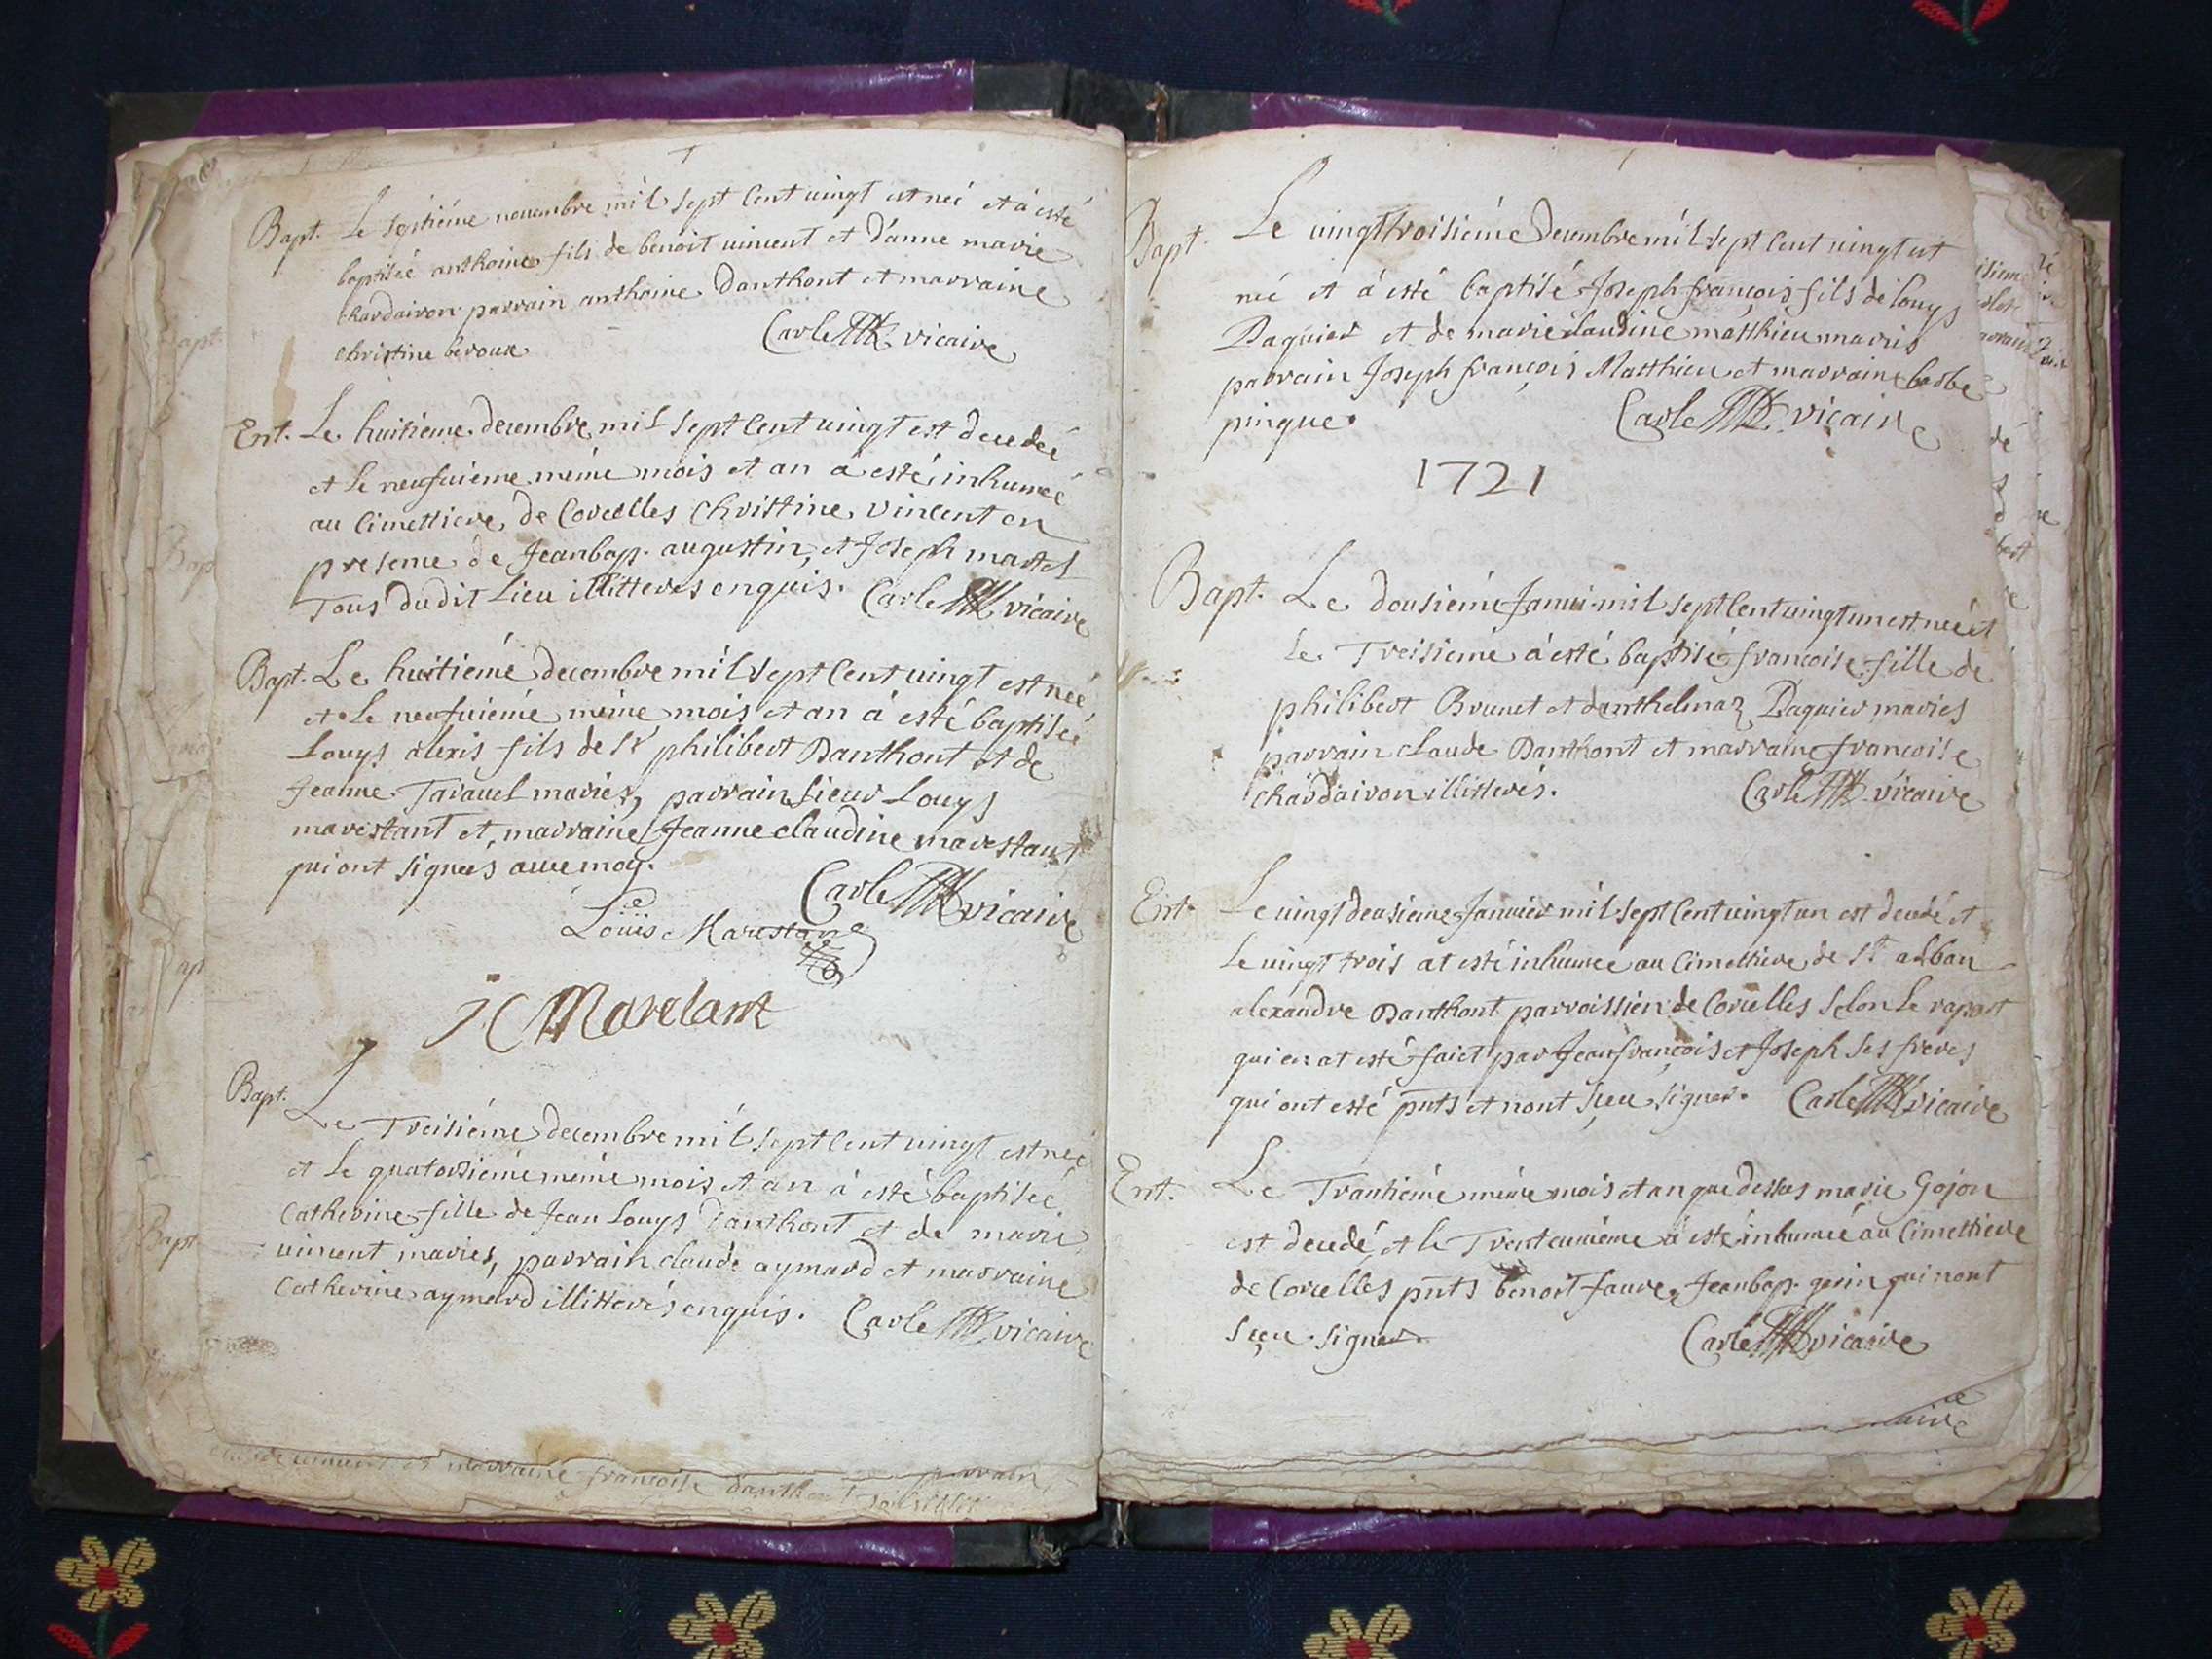 Bapt. Le septiéme nouembre mil sept Cent uingt est neé et à esté
baptiseé anthoine fils de benoit uincent et d'anne marie
chardairon parrain anthoine Danthont et marraine
christine beroux Carle vicaire
Ent. Le huitiéme decembre mil sept Cent uingt est decedeé
et le neufuiéme méme mois et an à esté inhumeé
au Cimettiere de Corcelles Christine vincent en
presence de Jeanbap. augustin, et Joseph martel
Tous dudit Lieu illitteres enquis. Carle vicaire
Bapt. Le huitiéme decembre mil sept Cent uingt est neé
et le neufuiéme méme mois et an à esté baptiseé
Louys alexis fils de Sr philibert Danthont et de
Jeanne Tarauel mariés, parrain sieur Louys
marestant et, marraine Jeanne claudine marestant
qui ont signees auec moy.
Carle vicaire
Louis Marestant
JC Marelant
Bapt. Le Treisiéme decembre mil sept Cent uingt est neé
et le quatorsiéme méme mois et an à esté baptiseé
Catherine fille de Jean Louys Danthont et de marie
uincent maries, parrain claude aymard et marraine
Catherine aymard illitterés enquis. Carle vicaire
uincent et marraine françoise danthont parrain
Bapt. Le uingttroisiéme Decembre mil sept Cent uingt est
neé et à esté baptisé Joseph françois fils de louys
Paquier et de marie claudine matthieu mariés
parrain Joseph françois Matthieu et marraine barbe
pinque. Carle vicaire
1721
Bapt. Le dousiéme Janvi. mil sept Cent uingt un est neé et
le Treisiéme à esté baptisé françoise fille de
philibert Brunet et danthelmaz Paquier maries
parrain claude Danthont et marraine françoise
chardairon illitterés. Carle vicaire
Ent. Le uingt deusieme Januier mil sept Cent uingt un est decedé et
le uingt trois at esté inhumeé au Cimettiere de St alban
alexandre Danthont parroissien de Corcelles selon le raport
qui en at esté faict par Jean françois et Joseph ses freres
qui ont esté pnts et nont sçeu signer. Carle vicaire
Ent. Le Trantiéme méme mois et an que dessus marie Gojon
est decedé, et le Trenteuniéme à esté inhumeé au Cimettiere
de Corcelles pnts benoit faure, Jeanbap. gerin qui nont
sçeu signer. Carle vicaire